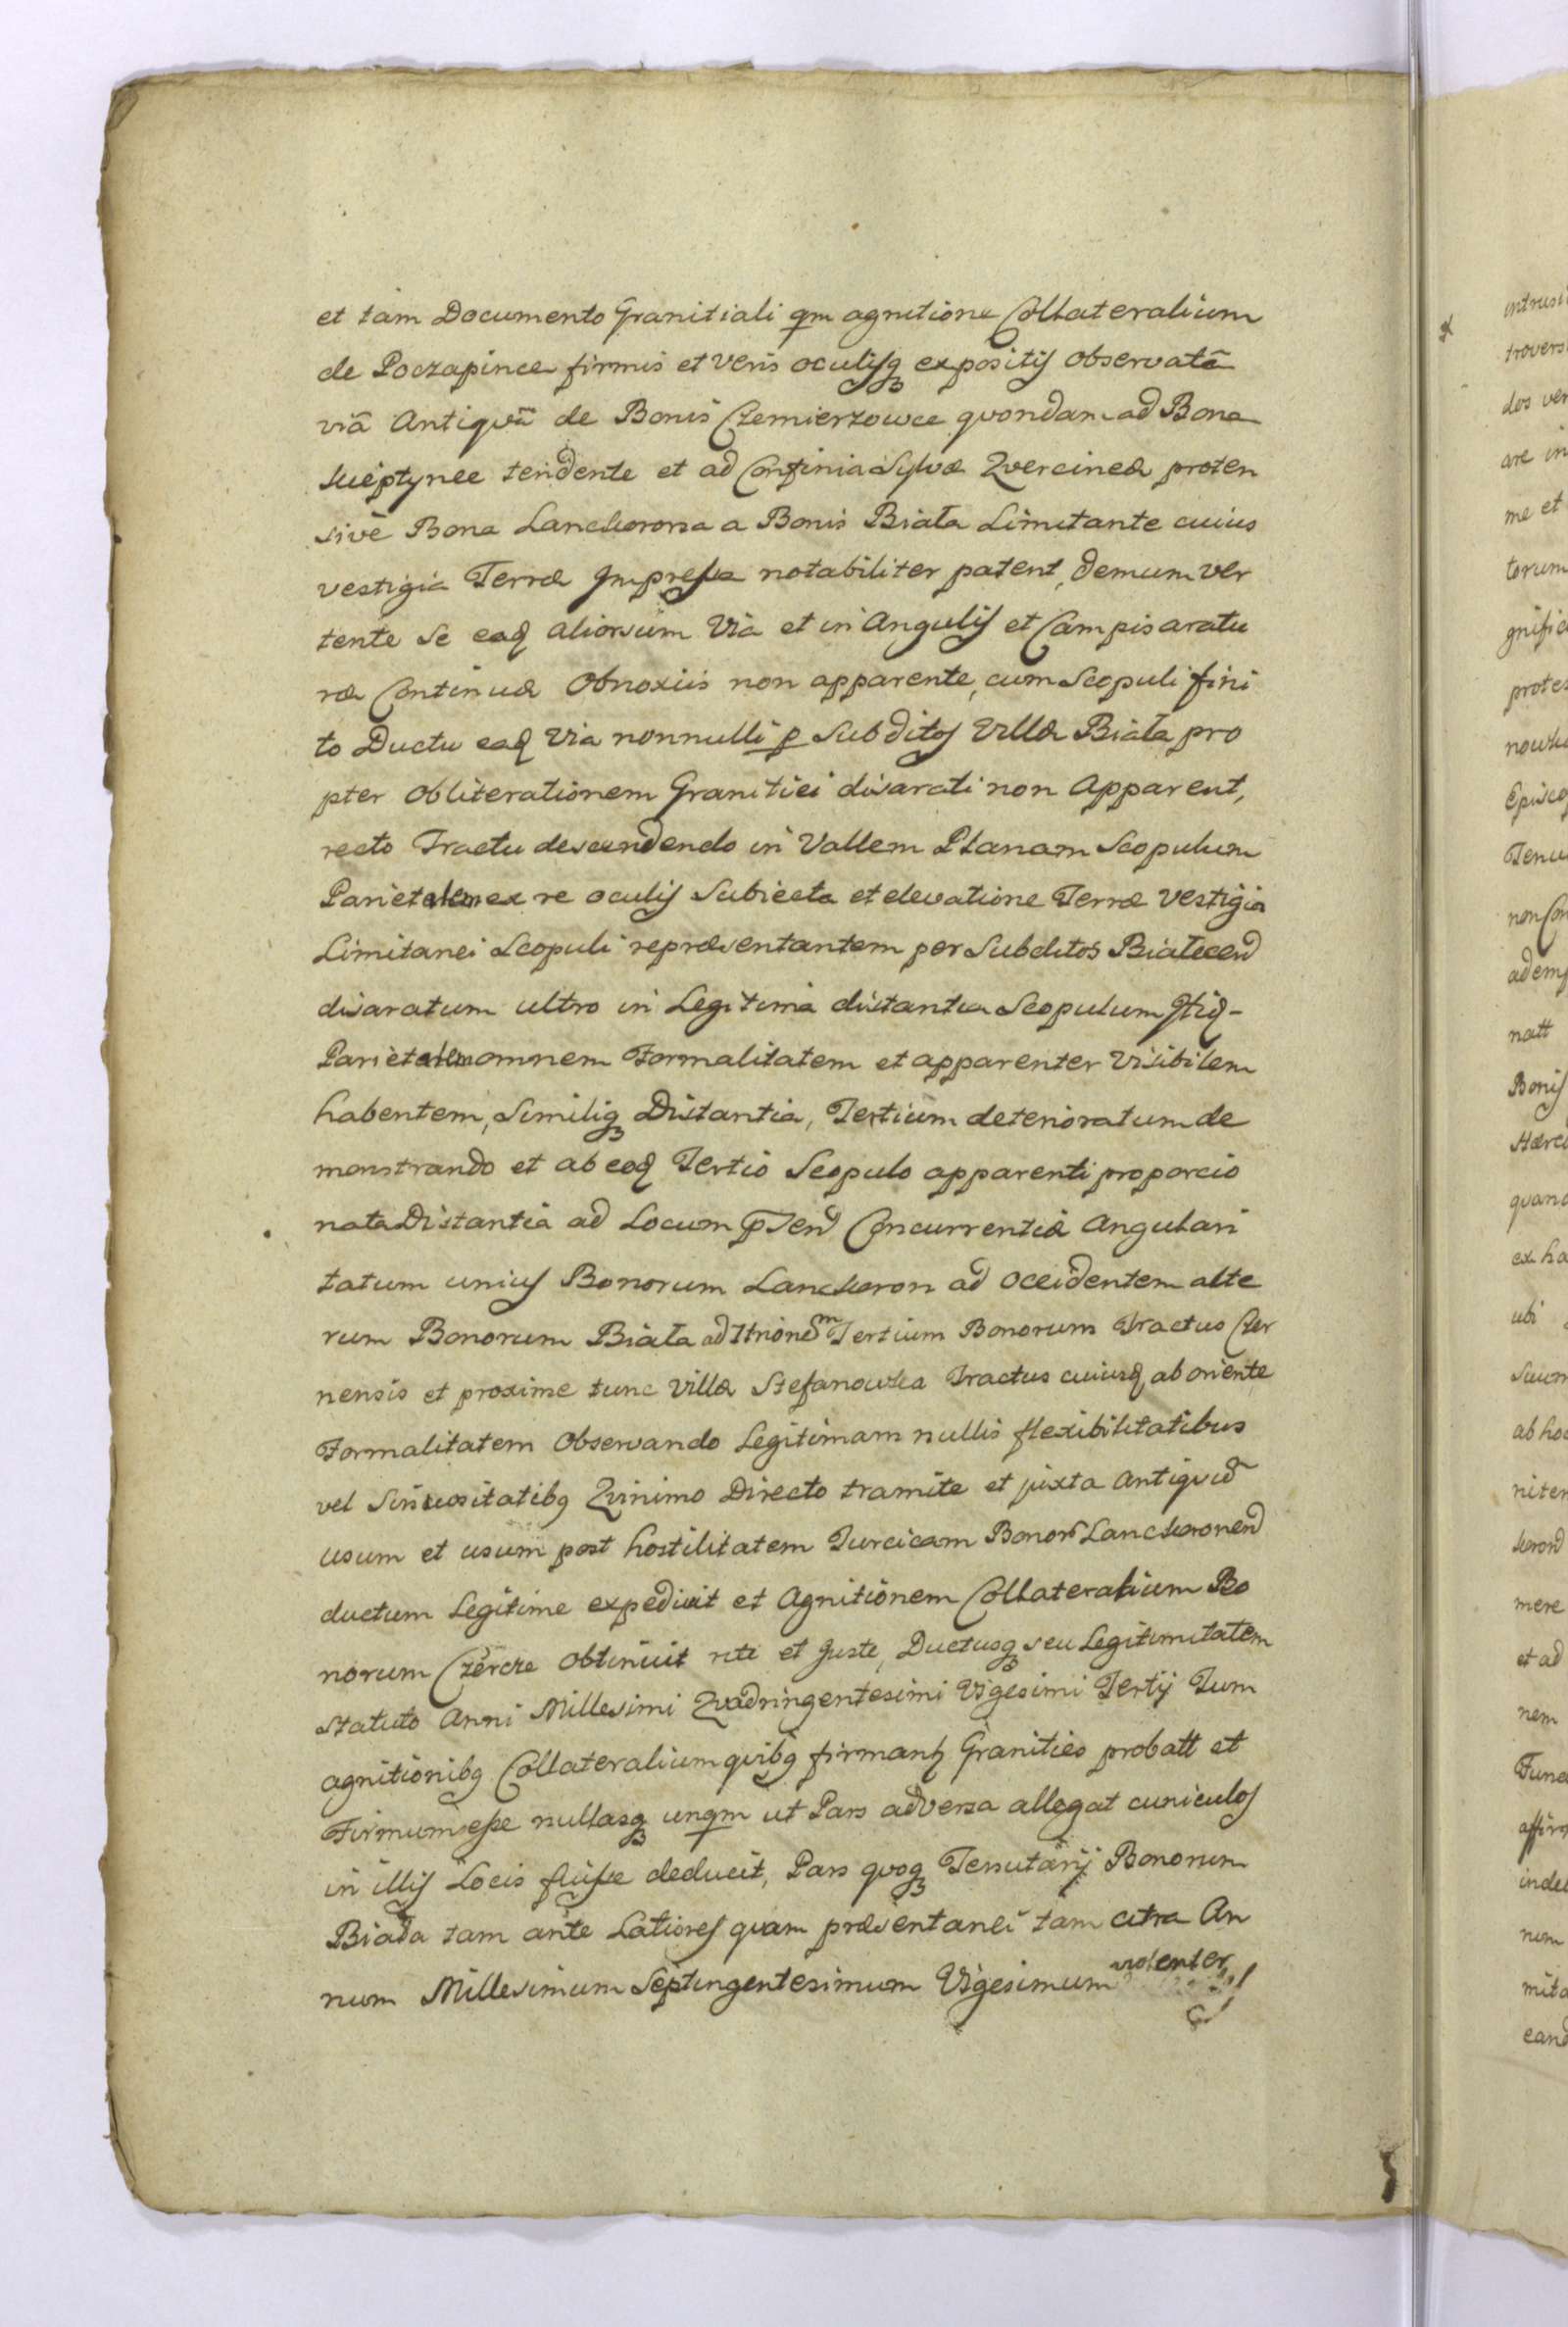 et tam Documento Granitiali qm agnitione Collateralium
de Poczapince firmis et veris oculisq expositis observatã
viã Antiquã de Bonis Czemierzowce quondam ad Bona
tendente et ad Confinia Sylvæ Quercineæ proten
sive Bona Lanckorona a Bonis Biała Limitante cuius
vestigia Terræ Impressa notabiliter patent, demum ver
tente se eaq aliorsum Via et in Angulis et Campis aratu
ræ Continuæ Obnoxiis non apparente, cum Scopuli fini
to Ductu eaq Via nonnulli p Subditos Villæ Biała pro
pter obliterationem Granitiei disarati non Apparent,
recto Tractu descendendo in Vallem Planam Scopulum
Parietalem ex re oculis Subiecta et elevatione Terræ Vestigia
Limitanei Scopuli repræsentantem per Subditos
disaratum ultro in Legitima distantia Scopulum
Parietalem omnem Formalitatem et apparenter Visibilem
habentem, Similiq Distantia, Tertium deterioratum de
monstrando et ab eoq Tertio Scopulo apparenti proporcio
nata Distantia ad Locum Concurrentiæ Angulari
tatum unius Bonorum Lanckoron ad occidentem alte
rum Bonorum Biała ad Tertium Bonorum Tractus Czer
nensis et proxime tunc Villæ Stefanowka Tractus cuiusq ab oriente
Formalitatem observando Legitimam nullis flexibilitatibus
vel Sinuositatibq Quinimo Directo tramite et juxta
usum et usum post hostilitatem Turcicam Bonor Lanckoronen
ductum Legitime expediuit et Agnitionem Collateralium Bo
norum Czercze obtinuit rite et Juste, Ductusq seu Legitimitatem
Statuto Anni Millesimi Quadringentesimi Vigesimi Tertij Tum
agnitionibq Collateralium quibq Granities probatt et
Firmum esse nullasq unqm ut Pars adversa allegat cuniculos
in illis Locis fuisse deducit, Pars quoq Tenutarij Bonorum
Biała tam ante Latiores quam præsentanei tam citra An
num Millesimum Septingentesimum Vigesimum violenter